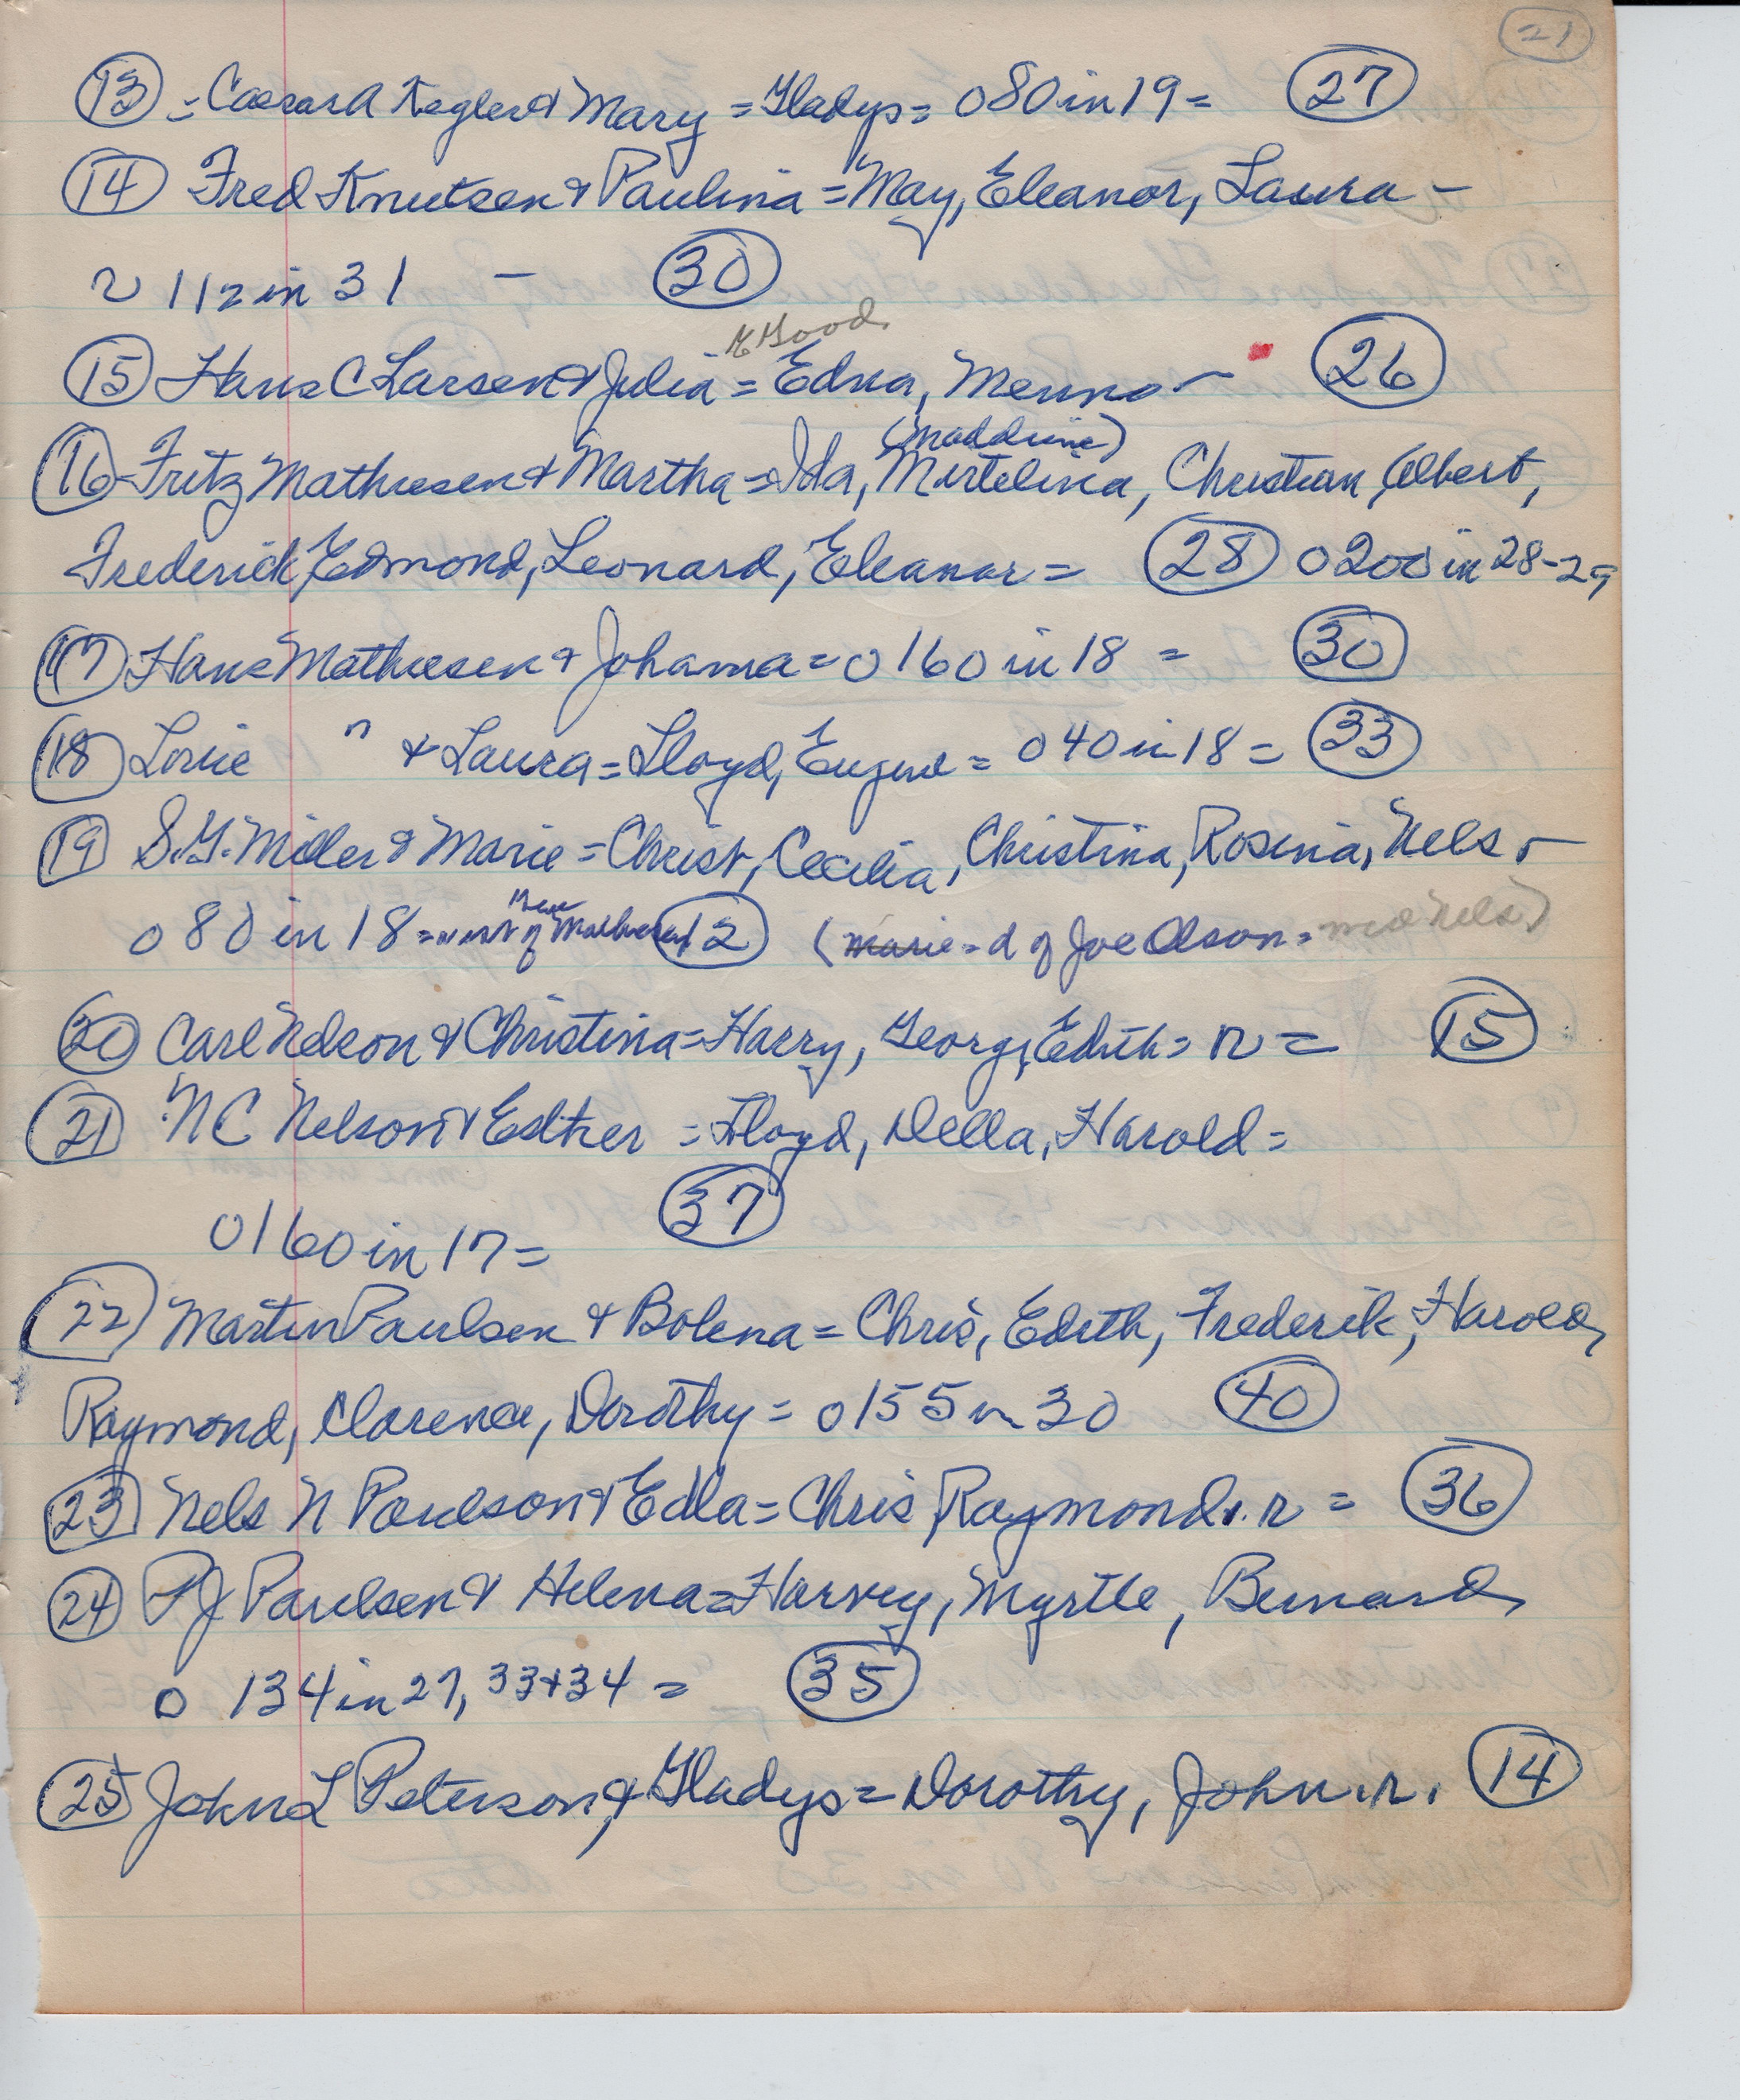 21
13 = Caesar A Kegler & Mary = Gladys = 080 in 19 = 27
14 Fred Knutsen & Paulina = May, Eleanor, Laura -
r 112 in 31 - 30
Good
15 Hans C Larsen & Julia = Edna, Menno - 26
(Maddrine)
16 - Fritz Mathiesen & Martha = Ida, Mirtelina, Christian, Albert,
Frederick, Edmond, Leonard, Eleanor = 28 0200 in 28-29
17 Hans Mathiesen & Johanna = 0160 in 18 = 30
18 Louie " & Laura = Lloyd, Eugene = 040 in 18 = 33
19 S.G. Miller & Marie = Christ, Cecilia, Christina, Rosina, Nels, -
080 in 18 = west of 12 (Marie = d of Joe Olson = Mrs Nels)
20 Carl Nelson & Christina = Harry, George, Edith = r = 15
21 N C Nelson & Esther = Floyd, Della, Harold =
0160 in 17 = 37
22 Martin Paulsen & Bolena = Chris, Edith, Frederik, Harold,
Raymond, Clarence, Dorothy = 0155 in 30 40
23 Nels N Paulson & Edla = Chris, Raymond. r = 36
24 P J Paulsen & Helena = Harvey, Myrtle, Bernard,
0 134 in 27, 33 + 34 = 35
25 John L Peterson, & Gladys = Dorothy, John. r. 14